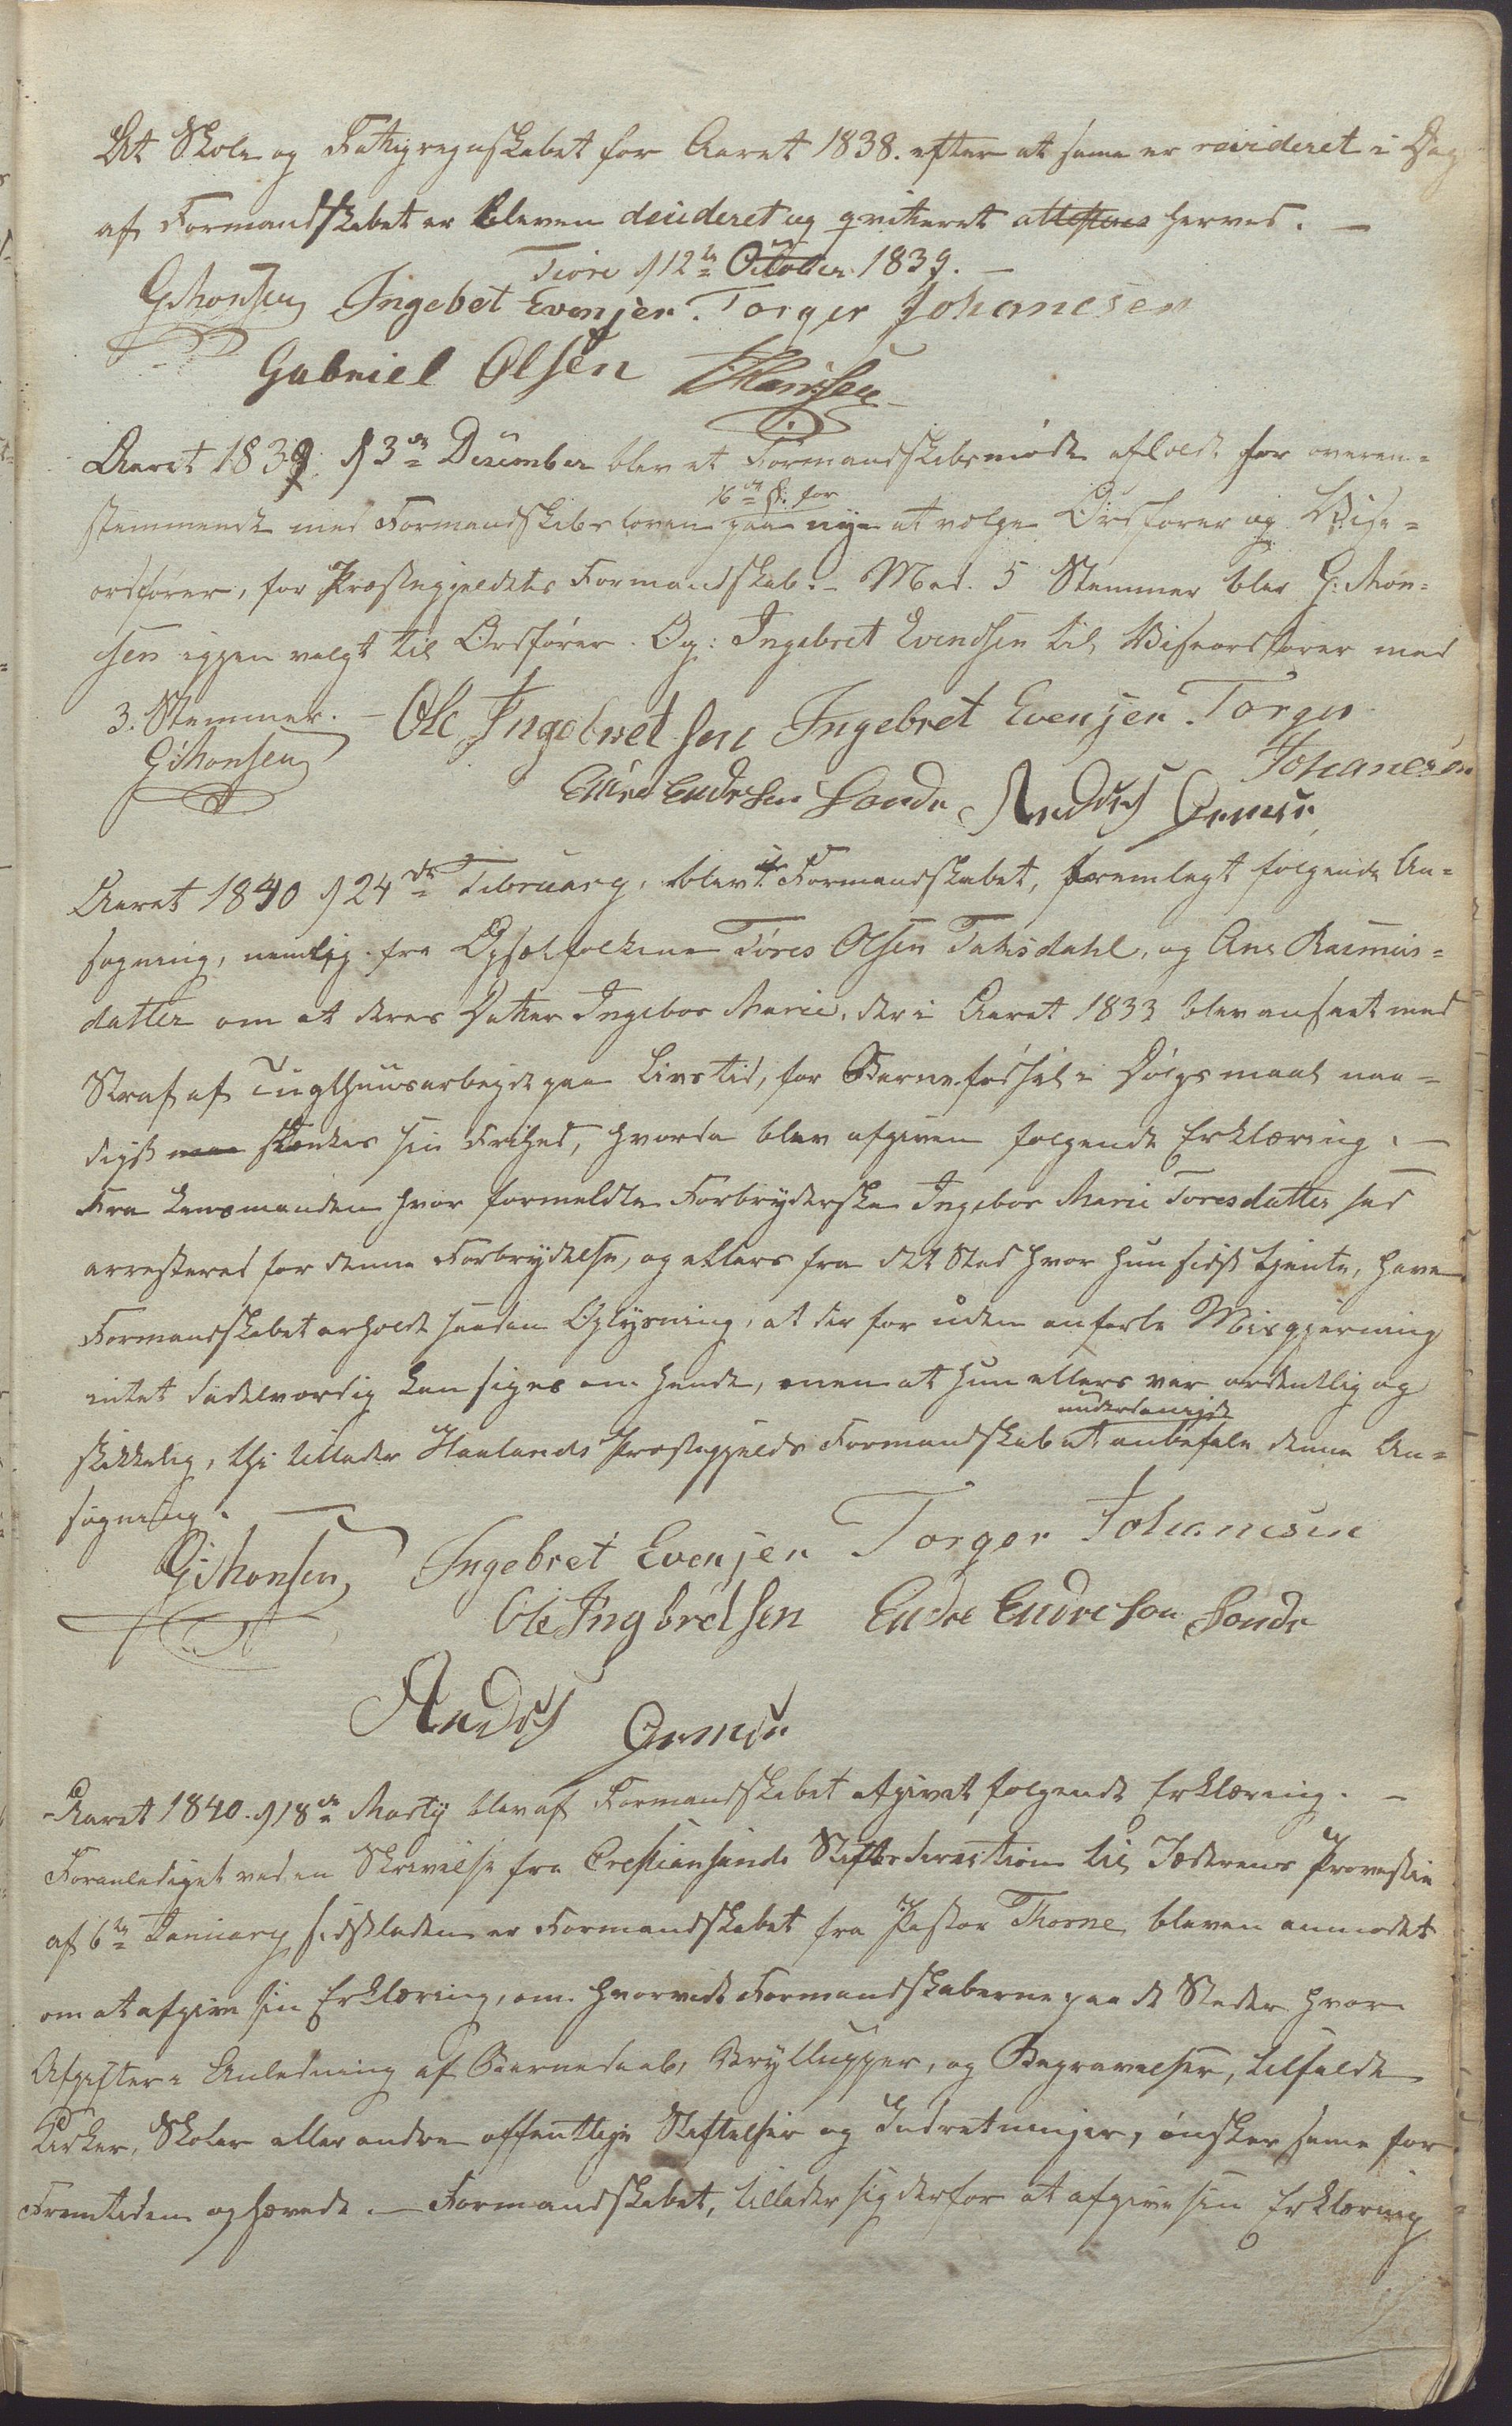 At Skole og Fatigregnskabet for Aaret 1838. efter at samme er revideret i Dag
af Formandskabet er bleven decideret og qvitteret attesteres herved. —
Tiøre d 12te October 1839. —
G: Monsen Ingebet Evensen. Torger Johanesen
Gabriel Olsen
Aaret 1839 d 3die December blev et Formandskabsmøde afholdt for overen=
stemmende med Formandskabsloven 16de §. for paa nye at vælge Ordfører og Vise=
ordfører, for Præstegjeldets Formandskab. – Med. 5 Stemmer blev G: Mon=
sen igjen valgt til Ordfører. Og: Ingebret Evendsen til Viseordfører med
3. Stemmer. – Ole Ingebretsen Ingebret Evensen. Torger
G: Monsen Johanesen
Endre Endresen Sonde
Aaret 1840 d 24de February, blev i Formandskabet, fremlagt følgende An=
søgning, nemlig fra Opholdsfolkene Tøres Olsen Taksdahl, og Ane Rasmus=
datter om at deres Datter Ingebor Marie, der i Aaret 1833 blev anseet med
Straf af Tugthuusarbeyde paa Livstid, for Barnefødsel i Dølgsmaal naa=
digst skænkes sin Frihed, hvorda blev afgiven følgende Erklæring. —
Fra Lensmanden hvor formeldte Forbryderske Ingebor Marie Toresdatter sad
arresteret for denne Forbrydelse, og ellers fra det Sted hvor hun sidst tjente, have
Formandskabet erholdt saadan Oplysning, at der for uden anførte Misgjerning
intet dadelværdig kan siges om hende, men at hun ellers var ordentlig og
underdanigst
skikkelig, thi tillader Haalands Præstegjelds Formandskab at anbefale denne An=
søgning. —
G: Monsen Ingebret Evensen Torger Johanesen
Ole Ingbretsen Endre Endreson Sonde
Aaret 1840. d 18de Martij blev af Formandskabet afgivet følgende Erklæring. —
Foranlediget ved en Skrivelse fra Crestiansands Stiftsdirection til Jæderens Provstie
af 6te January sidstleden er Formandskabet fra Pastor Thorne bleven anmodet
om at afgive sin Erklæring, om hvorvidt Formandskaberne paa de Steder hvor
Afgifter i Anledning af Barnedaab, Bryllupper, og Begravelser, tilfaldt
Kirker, Skoler eller andre offentlige Stiftelser og Indretninger, ønsker same for
Fremtiden ophævede. — Formandskabet, tillader sig derfor at afgive sin Erklæring